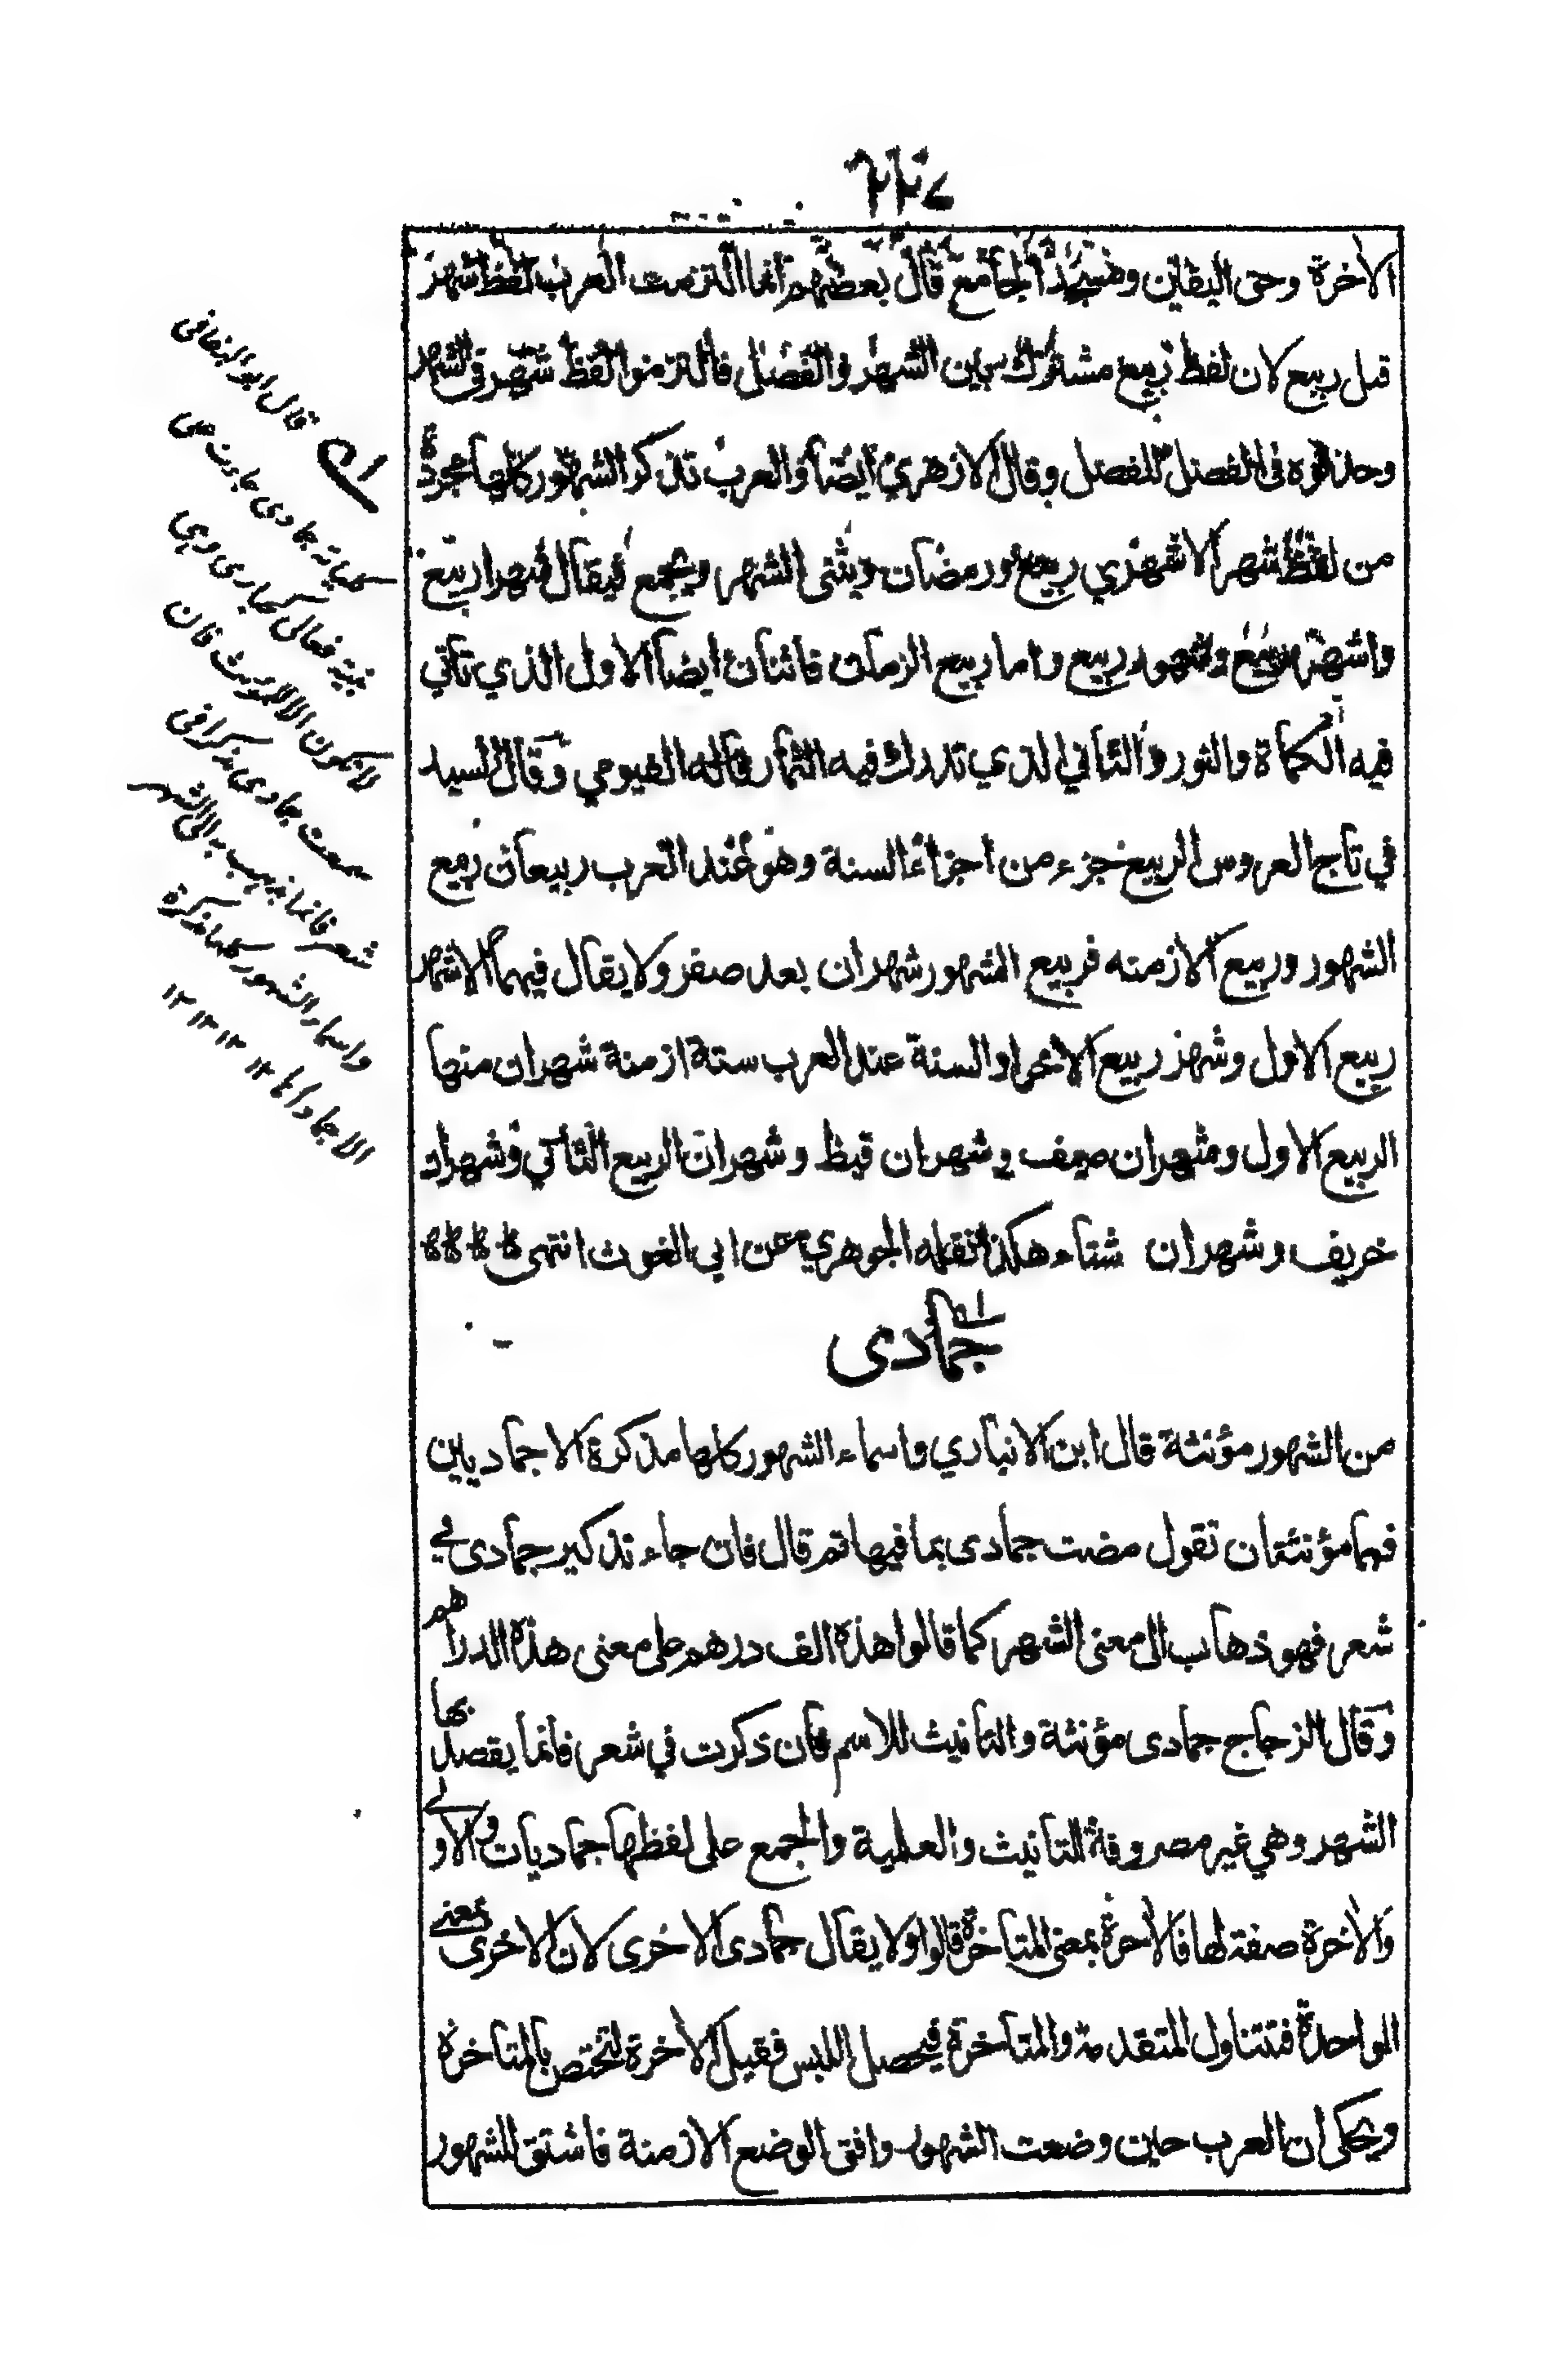 الاخرة وحق اليقين ومسجد الجامع قال بعضهم انما التزمت العرب لفظ شهر
قبل ربيع لان لفظ ربيع مشترك بين الشهر والفصل فالتزموا لفظ شهر في الشهر
وحذفوه في الفصل للفصل وقال الازهري ايضا والعرب تذكر الشهور كلها مجردة
من لفظ شهر الا شهري ربيع ورمضان ويثنى الشهر ويجمع فيقال شهرا ربيع
واشهر ربيع وشهور ربيع واما ربيع الزمان فاثنان ايضا الاول الذي تاتي
فيه الكماة والنور والثاني الذي تدرك فيه الثمار قاله الفيومي وقال السيد
في تاج العروس الربيع جزء من اجزاء السنة وهو عند العرب ربيعان ربيع
الشهور وربيع الازمنه فربيع الشهور شهران بعد صفر ولا يقال فيهما الا شهر
ربيع الاول وشهر ربيع الاخر والسنة عند العرب ستة ازمنة شهران منها
الربيع الاول وشهران صيف وشهران قيظ وشهران الربيع الثاني وشهران
خريف وشهران شتاء هكذا نقله الجوهري عن ابي الغوث انتهى
جمادى
من الشهور مؤنثة قال ابن الانباري واسماء الشهور كلها مذكرة الا جماديين
فهما مؤنثتان تقول مضت جمادى بما فيها ثم قال فان جاء تذكير جمادى في
شعر فهو ذهاب الى معنى الشهر كما قالوا هذه الف درهم على معنى هذه الدراهم
وقال الزجاج جمادى مؤنثة والتانيث للاسم فان ذكرت في شعر فانما يقصد بها
الشهر وهي غير مصروفة للتانيث والعلمية والجمع على لفظها جماديات والاولى
والاخرة صفة لها فالاخرة بمعنى المتاخرة قالوا ولا يقال جمادى الاخرى لان الاخرى بمعنى
الواحدة فتتناول المتقدمة والمتاخرة فيحصل اللبس فقيل الاخرة لتختص بالمتاخرة
ويحكى ان العرب حين وضعت الشهور وافق الوضع الازمنة فاشتق للشهور
قال ابو البقا في
كلياته جمادى جاءت على
بنية فعالى كحبارى وهي
لا تكون الا للمؤنث فان
سمعت جمادى مذكرا في
شعر فانما يذهب به الى الشهر
واسماء الشهور كلها مذكرة
الا جمادا ١٢ ١٢ ١٢ ١٢